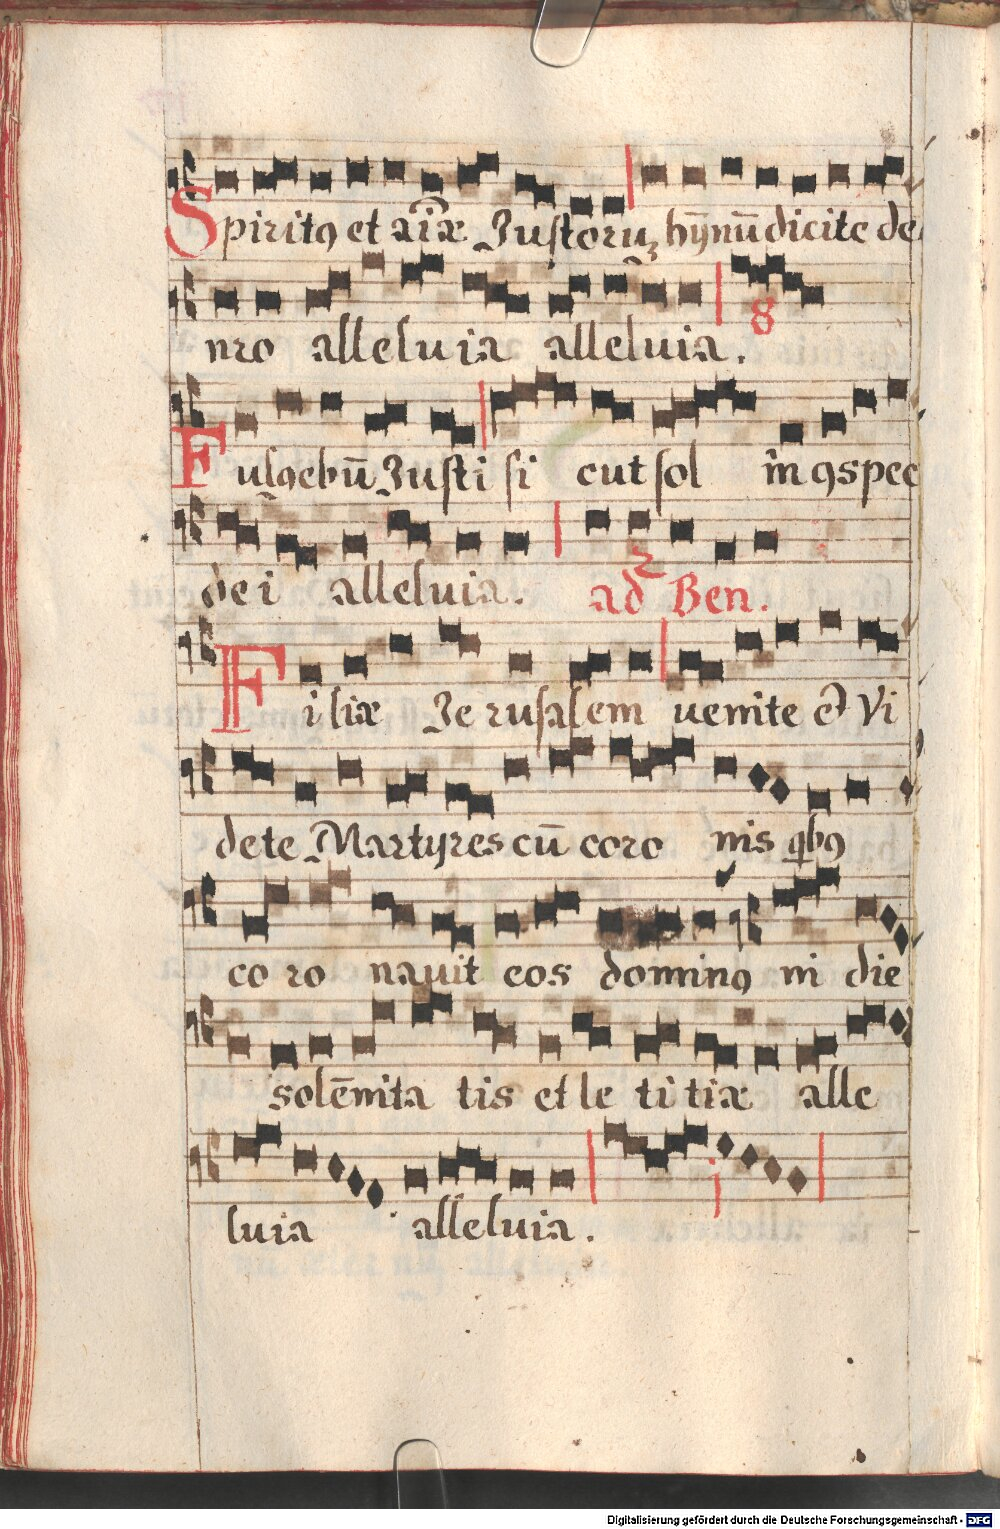 Spiritꝯ et aīæ Justoruꝫ hȳnū dicite de
nro alleluia alleluia.
8
Fulgebū Justi si cut sol in ꝯspec
dei alleluia. ad Ben.
Filiæ Je rusalem uenite et Vi
dete Martyres cū coro nis qbꝯ
co ro nauit eos dominꝯ in die
solēnita tis et le ti tiæ alle
luia alleluia.
j
Digitalisierung gefördert durch die Deutsche Forschungsgemeinschaft - DFG